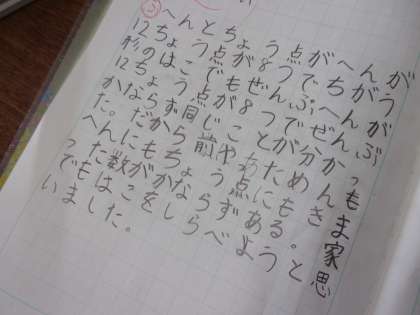 ふ へんとちょう点がへんが
12ちょう点が8つでちがう
形のはこでもぜんぶへんが
12ちょう点が8つでぜんぶ
かならず同じことが分かっ
た。だから前やっためんも
へんにもちょう点にもきま
った数がかならずある。家
でもはこをしらべようと思
いました。